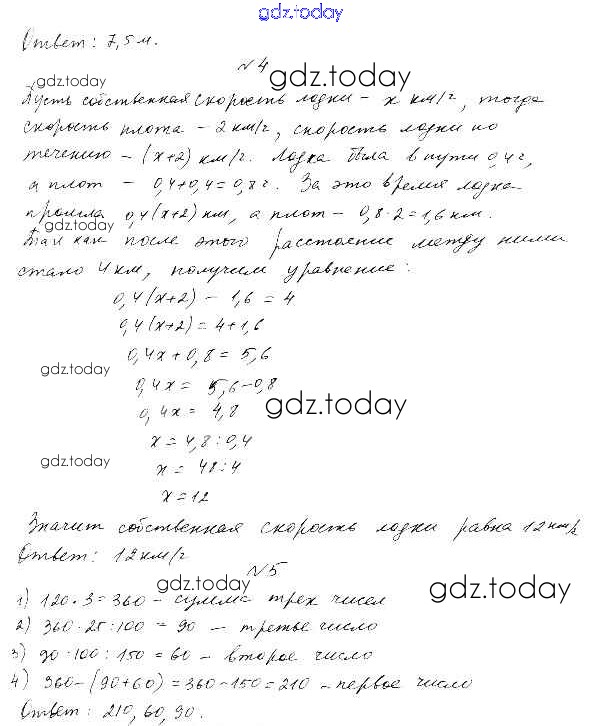 gdz.today
Ответ: 7,5 м.
№4
gdz.today
gdz.today
Пусть собственная скорость лодки - x км/г, тогда
скорость плота - 2 км/г, скорость лодки по
течению - (x+2) км/г. Лодка была в пути 0,4г,
а плот - 0,4+0,4=0,8г. За это время лодка
прошла 0,4(x+2) км, а плот - 0,8·2=1,6 км.
gdz.today
Так как после этого расстояние между ними
стало 4 км, получим уравнение:
0,4(x+2) - 1,6 = 4
0,4(x+2) = 4+1,6
0,4x + 0,8 = 5,6
gdz.today
0,4x = 5,6-0,8
0,4x = 4,8
gdz.today
x = 4,8 : 0,4
gdz.today
x = 48:4
x = 12
Значит собственная скорость лодки равна 12 км/г
Ответ: 12 км/г
№5
gdz.today
gdz.today
1) 120·3=360 - сумма трех чисел
2) 360·25:100 = 90 - третье число
3) 90·100:150=60 - второе число
4) 360-(90+60)=360-150=210 - первое число
Ответ: 210, 60, 90.